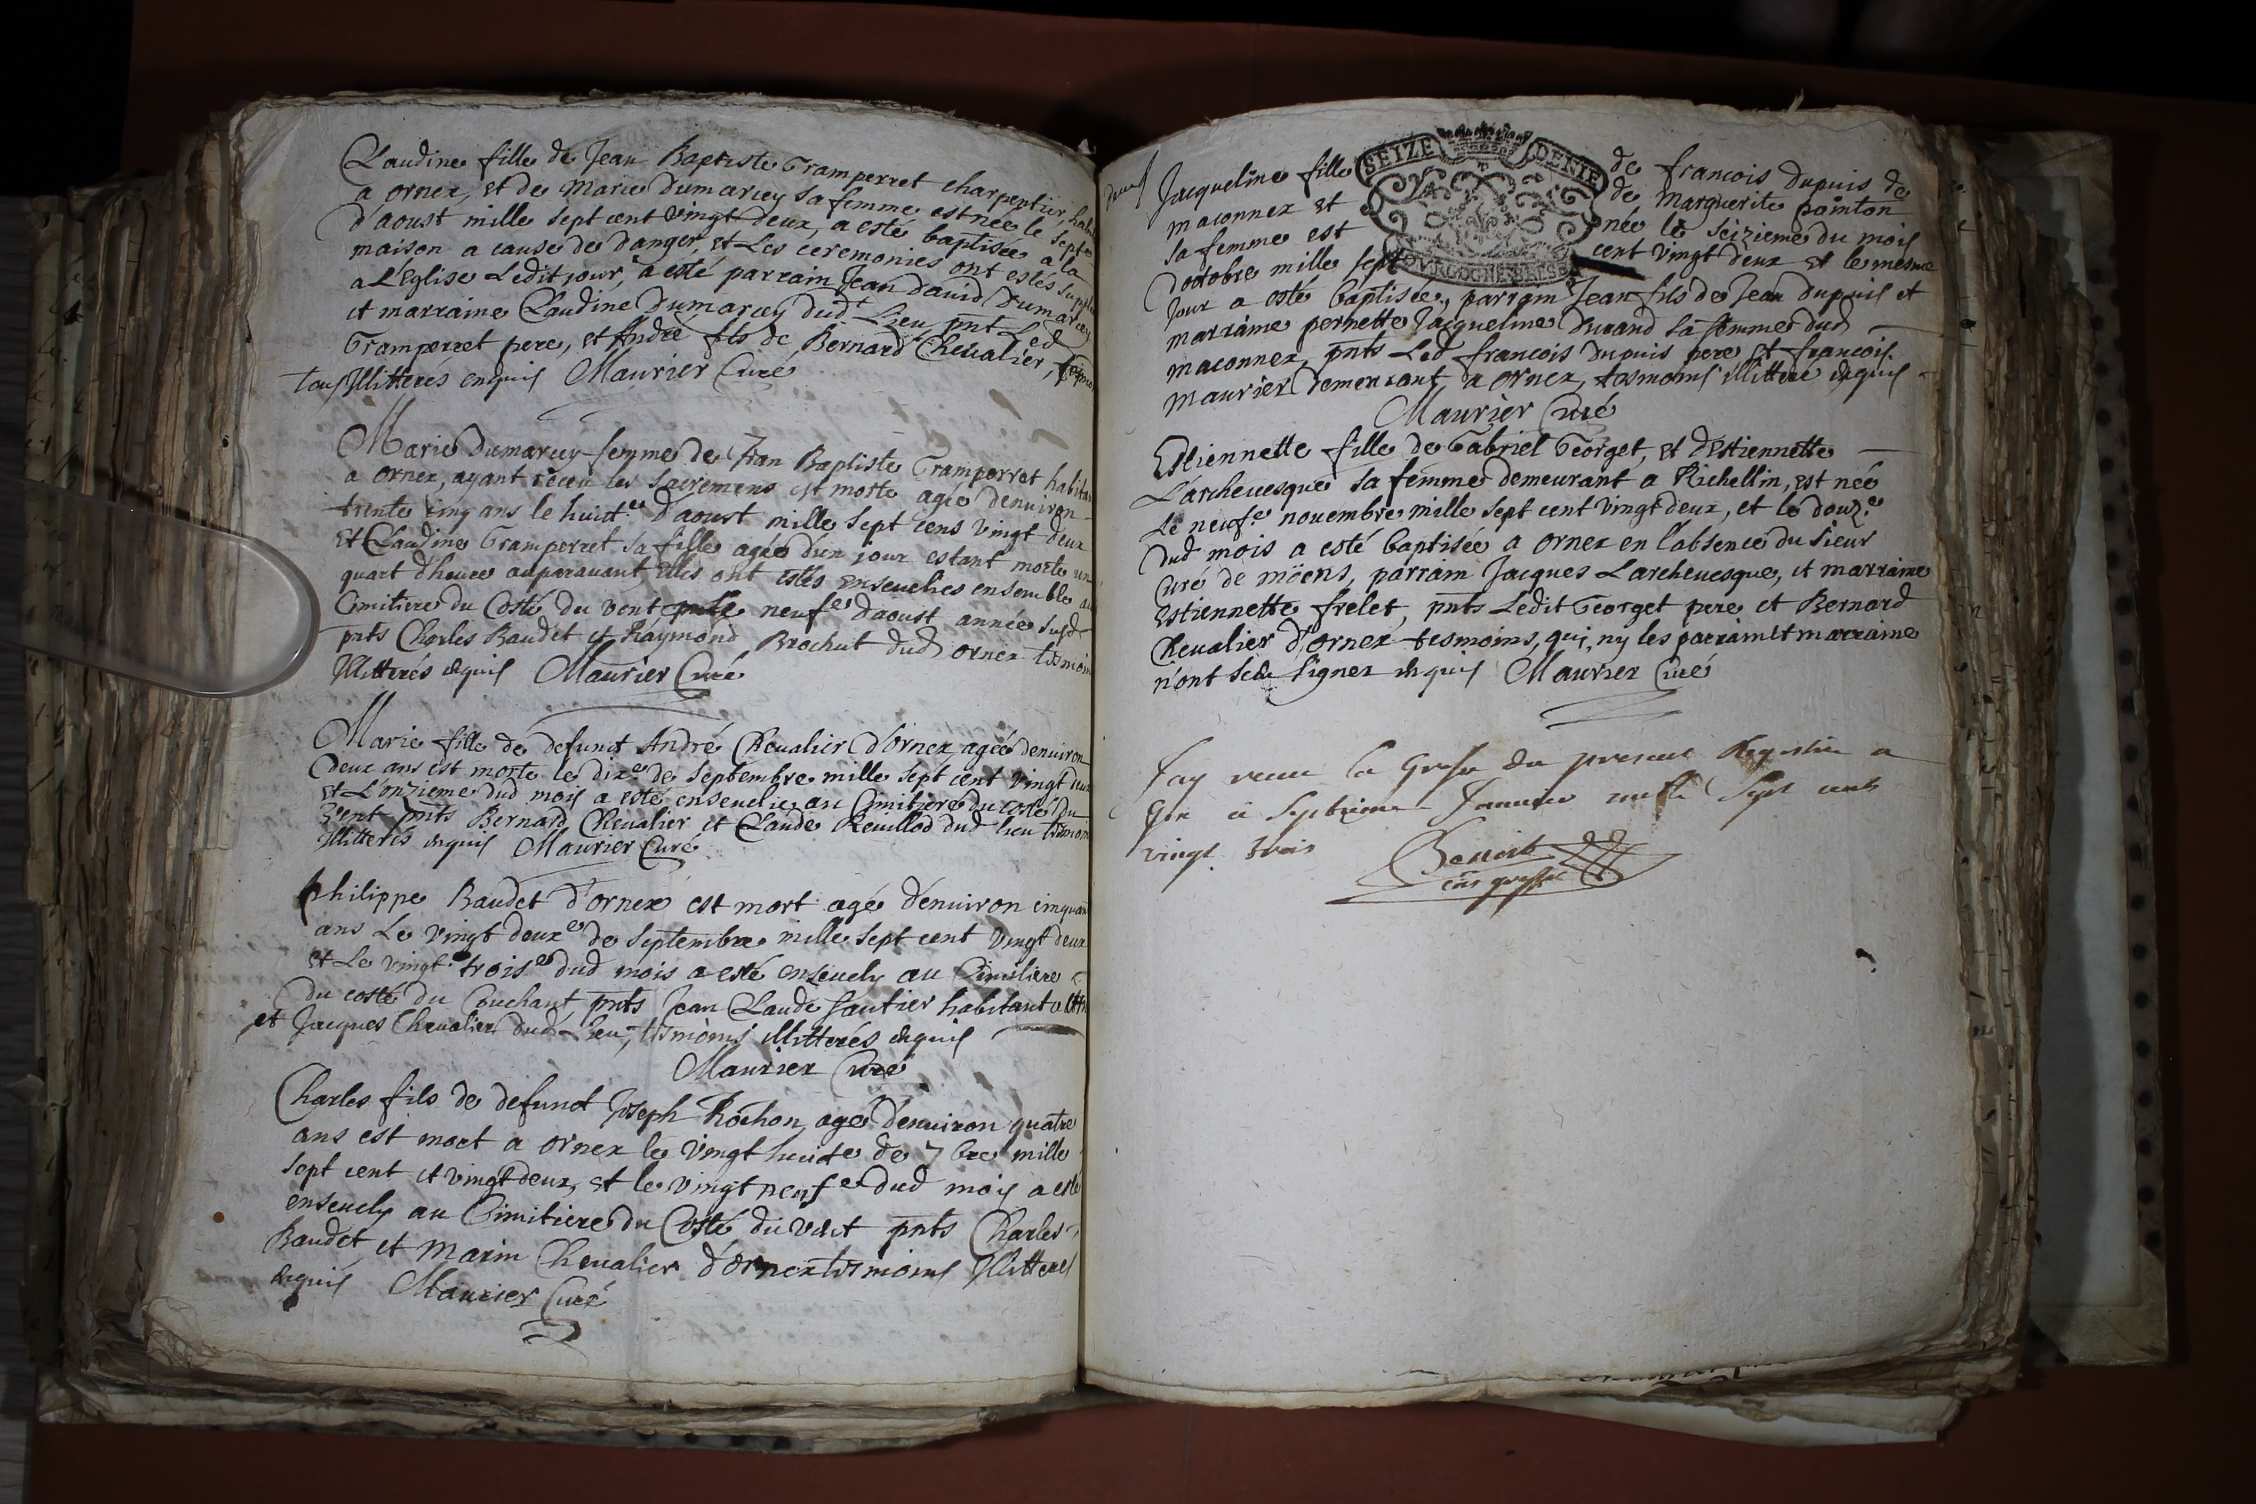 Claudine fille de Jean Baptiste Gramperret charpentier,
a ornex, et de Marie Dumarcey sa femme est née le sept
d'aoust mille sept cent vingt deux, a esté baptisée a la
maison a cause de danger, et Les ceremonies ont estés
a L'Eglise Ledit jour, a esté parrain Jean David Dumarcey
et marraine Claudine Dumarcey dud Lieu, pnt Led
Gramperret pere, et André fils de Bernard Chevalier,
tous Illitteres enquis Maurier Curé
Marie Dumarcey femme de Jean Baptiste Gramperret
a ornex, ayant receu les sacremens est morte agée denviron
trente cinq ans le huict.e d'aoust mille sept cens vingt deux
et Claudine Gramperret sa fille agée d'un jour estant morte un
quart d'heure auparavant Elles ont estés ensevelies ensemble au
Cimitiere du Costé du vent neuf.e d'aoust année susd
pnts Charles Baudet et Raymond Brochut dud ornex
Illitterés enquis Maurier Curé
Marie fille de defunct André Chevalier d'Ornex agée denviron
deux ans est morte le dix.e de septembre mille sept cent vingt deux
et L'onzieme dud mois a esté ensevelie au Cimitiere du costé du
vent pnts Bernard Chevalier et Claude Revillod dud lieu
Illitterés enquis Maurier Curé
Philippe Baudet d'ornex est mort agé d'environ
ans Le vingt deux.e de septembre mille sept cent vingt deux
et Le vingt trois.e dud mois a esté ensevely au Cimitiere
du costé du Couchant pnts Jean Claude Sautier habitant
et Jacques Chevalier dud Lieu, tesmoins illitterés enquis
Maurier Curé
Charles fils de defunct Joseph Rochon, agé d'environ quatre
ans est mort a ornex le vingt huict.e de 7bre mille
sept cent et vingt deux, et le vingt neuf.e dud mois a esté
ensevely au Cimitiere du Costé du vent pnts Charles
Baudet et Marin Chevalier d'ornex tesmoins Illitteres
enquis Maurier Curé
SEIZE DENIE
Jacqueline fille de francois Dupuis de
maconnex et de Marguerite pointon
sa femme est née le seizieme du mois
d'octobre mille sept cent vingt deux et le mesme
jour a esté baptisée, parrain Jean fils de Jean dupuis et
marraine pernette Jacqueline Durand sa femme dud
maconnex, pnts Led francois Dupuis pere et francois
maurier demeurant a ornex, tesmoins illittere enquis
Maurier Curé
Estiennette fille de Gabriel Georget, et d'Estiennette
L'archevesque sa femme demeurant a Richellin, est née
Le neuf.e novembre mille sept cent vingt deux, et le douz.e
dud mois a esté baptisée a ornex en l'absence du sieur
Curé de möens, parrain Jacques Larchevesque, et marraine
Estiennette frelet, pnts Ledit Georget pere et Bernard
Chevalier d'ornex tesmoins, qui, ny les parrain et marraine
n'ont sceu signer enquis Maurier Curé
J'ay receu la du present Registre a
Gex ce septieme Janvier mille sept cent
vingt trois